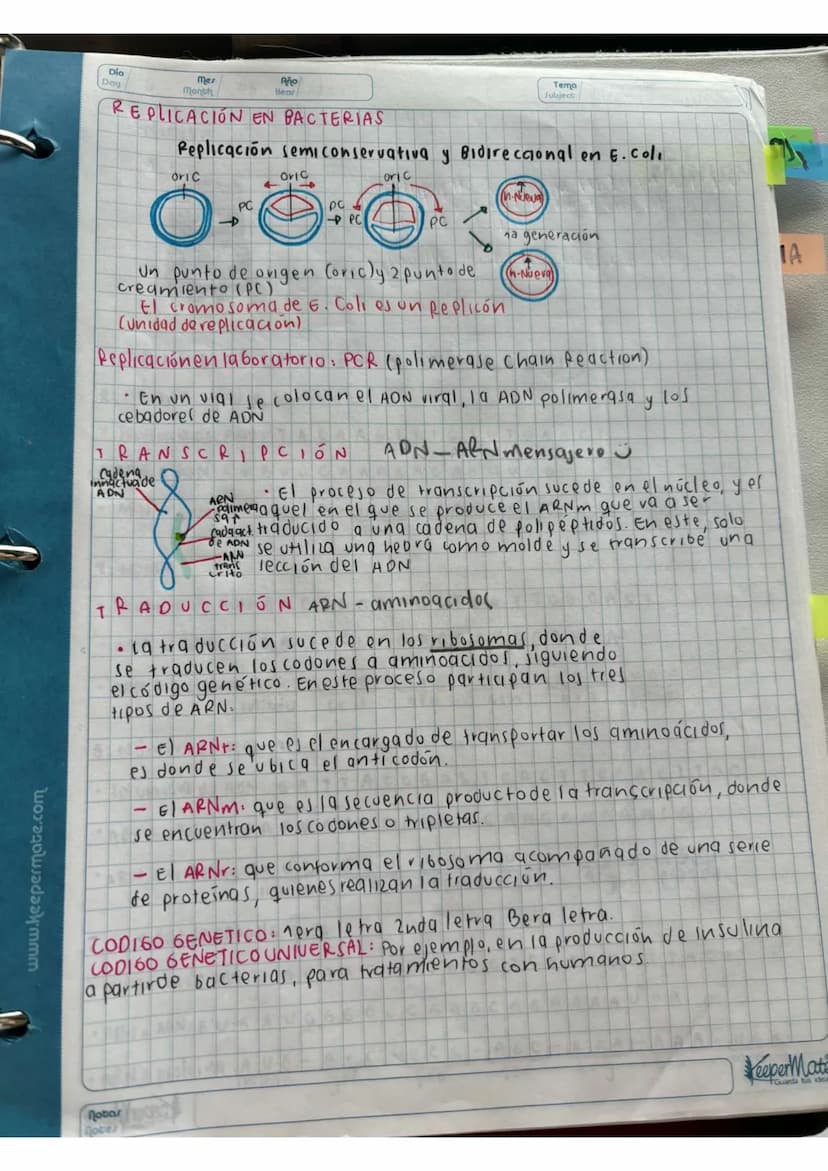 Día
Day
Mes
Month
Año
Year
Tema
Subject:
REPLICACIÓN EN BACTERIAS
Replicación semiconservativa y Bidireccional en E. Coli
oriC
oriC
oriC
PC
PC
PC
PC
h.Nueva
1a generación
h.Nueva
Un punto de origen (oric) y 2 punto de
creamiento (PC)
El cromosoma de E. Coli es un Replicón
(unidad de replicación)
Replicación en laboratorio: PCR (polimerase Chain Reaction)
· En un vial se colocan el ADN viral, la ADN polimerasa y los
cebadores de ADN
TRANSCRIPCIÓN ADN - ARN mensajero
cadena
innactiva de
ADN
ARN
polimera
sa
cad act
de ADN
ARN
trans
crito
· El proceso de transcripción sucede en el núcleo, y es
aquel en el que se produce el ARNm que va a ser
traducido a una cadena de polipeptidos. En este, solo
se utiliza una hebra como molde y se transcribe una
lección del ADN
TRADUCCIÓN ARN - aminoacidos
· La traducción sucede en los ribosomas, donde
se traducen los codones a aminoácidos, siguiendo
el código genético. En este proceso participan los tres
tipos de ARN.
- El ARNt: que es el encargado de transportar los aminoácidos,
es donde se ubica el anticodón.
- El ARNm: que es la secuencia producto de la transcripción, donde
se encuentran los codones o tripletas.
- El ARNr: que conforma el ribosoma acompañado de una serie
de proteínas, quienes realizan la traducción.
CODIGO GENETICO: 1era letra 2nda letra 3era letra.
CODIGO GENETICO UNIVERSAL: Por ejemplo, en la producción de insulina
a partir de bacterias, para tratamientos con humanos.
www.keepermate.com
KeeperMate
Guarda tus ideas
Notas
Notes